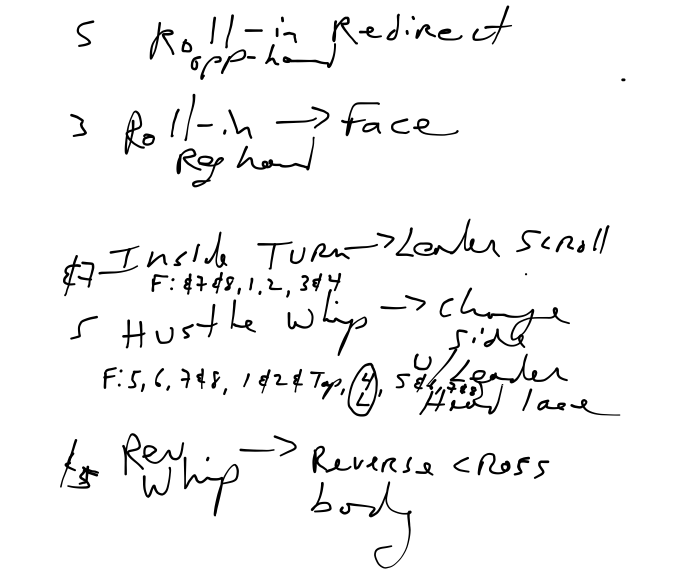 5 Roll-in Redirect
opp-hand
3 Roll-in → Face
Reg hand
&7 Inside Turn → Leader Scroll
F: &7&8, 1, 2, 3&4
5 Hustle Whip → Change
side
F: 5, 6, 7&8, 1&2& Tap, 4, 5& 7&8
L
w/Leader
Hand lace
Rev → Reverse cross
Whip body